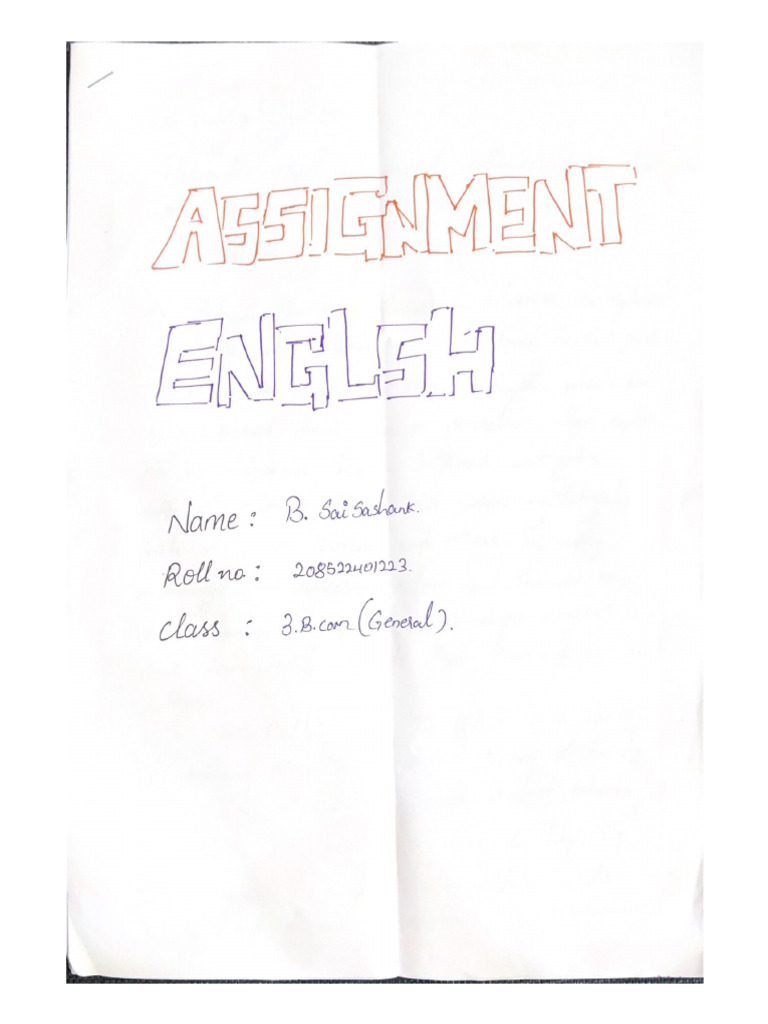 ASSIGNMENT
ENGLSH
Name : B. Sai Sashank.
Roll no : 208522401223.
class : 3.B.com (General).